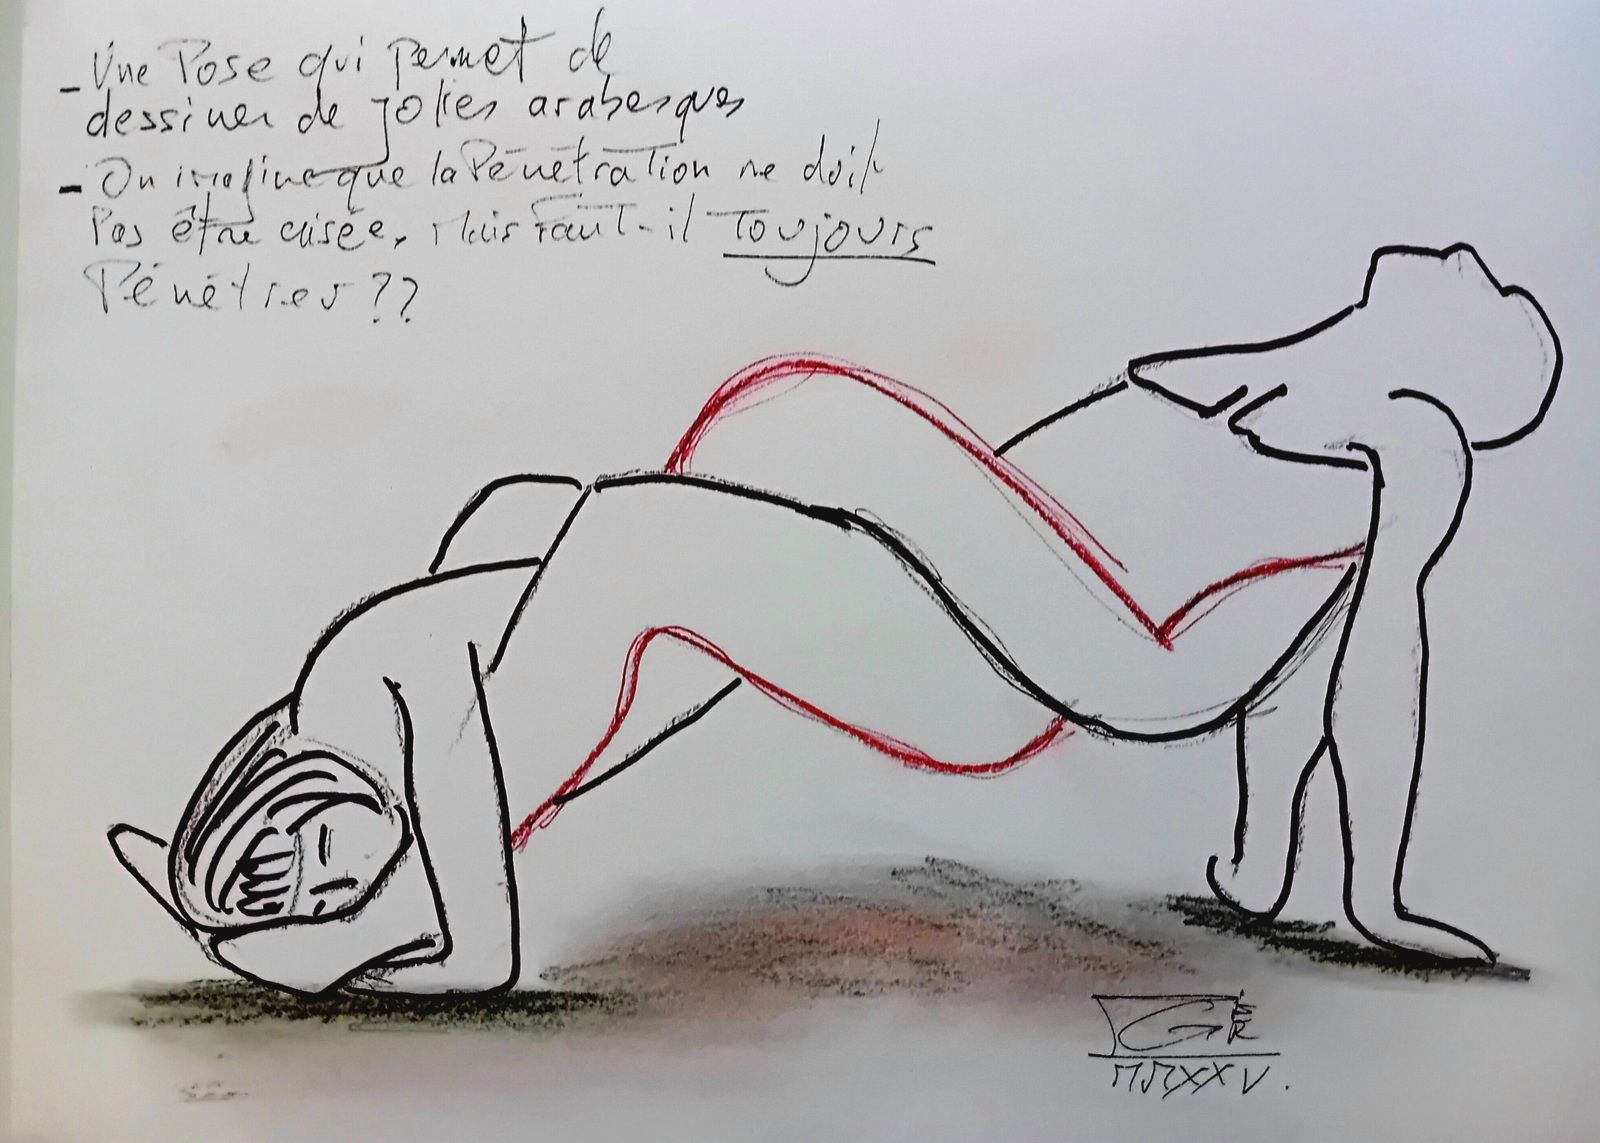 - Une Pose qui permet de
dessiner de jolies arabesques
- On imagine que la Pénétration ne doit
Pas être aisée, Mais Faut-il Toujours
Pénétrer ??
GER
MMXXV.